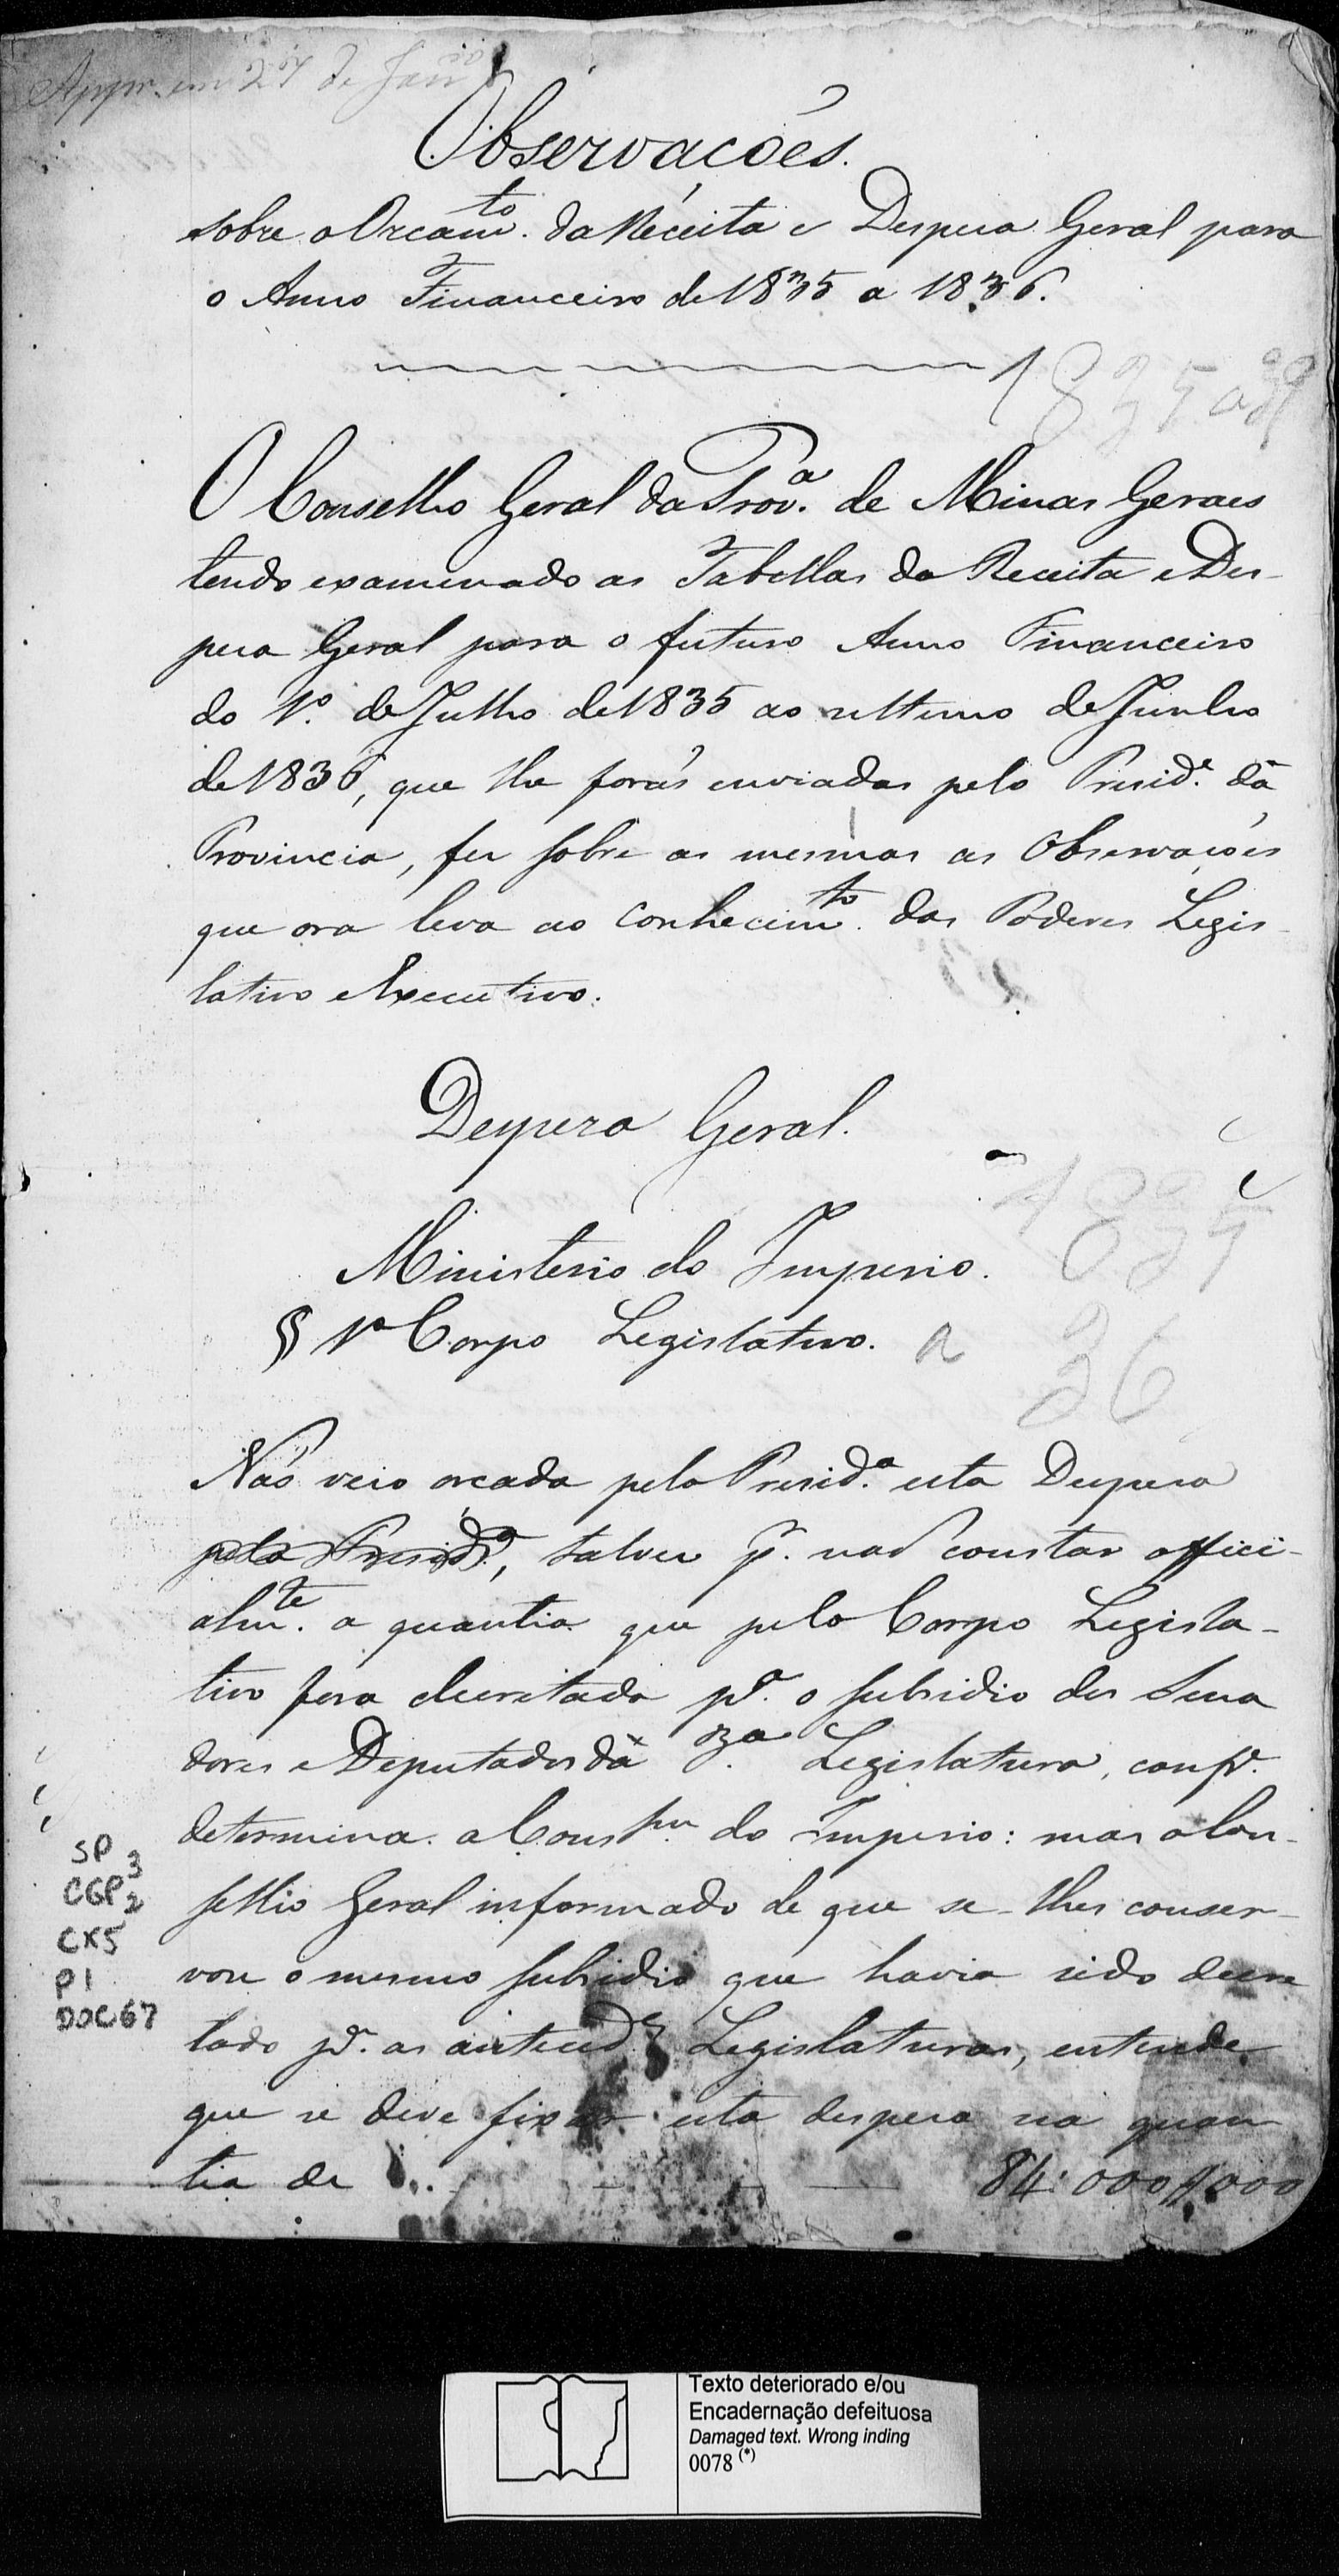 Appr. em 27 de Jan.ro
Observacões.
sobre o Orcam.to da Réceita e Despeza Geral para
o Anno Financeiro de 1835 a 1836.
1835 a 36
O Conselho Geral da Prov.a de Minas Geraes
tendo examinado as Tabellas da Receita e Des-
peza Geral para o futuro Anno Financeiro
do 1.o de Julho de 1835 ao ultimo de Junho
de 1836, que lhe forão enviadas pelo Presid.e da
Provincia, fez sobre as mesmas as Observações
que ora leva ao conhecim.to dos Poderes Legis-
lativo e Executivo.
Despeza Geral.
1835
Ministerio do Imperio.
§ 1o Corpo Legislativo. a 36
Não veio orcada pela Presid.a esta Despeza
pela Presid.a, talvez p.r não constar offici-
alm.te a quantia que pelo Corpo Legisla-
tivo fora decretada p.a o subsidio dos Sena
dores e Deputados da 3.a Legislatura, conf.e
determina a Const.am do Imperio: mas o Con-
selho Geral informado de que se-lhes conser-
vou o mesmo subsidio que havia sido decre
tado p.a as anteced.es Legislaturas, entende
que se deve fixar esta despeza na quan
tia de 84:000$000
SP 3
CGP 2
CX5
P1
DOC67
Texto deteriorado e/ou
Encadernação defeituosa
Damaged text. Wrong inding
0078 (*)